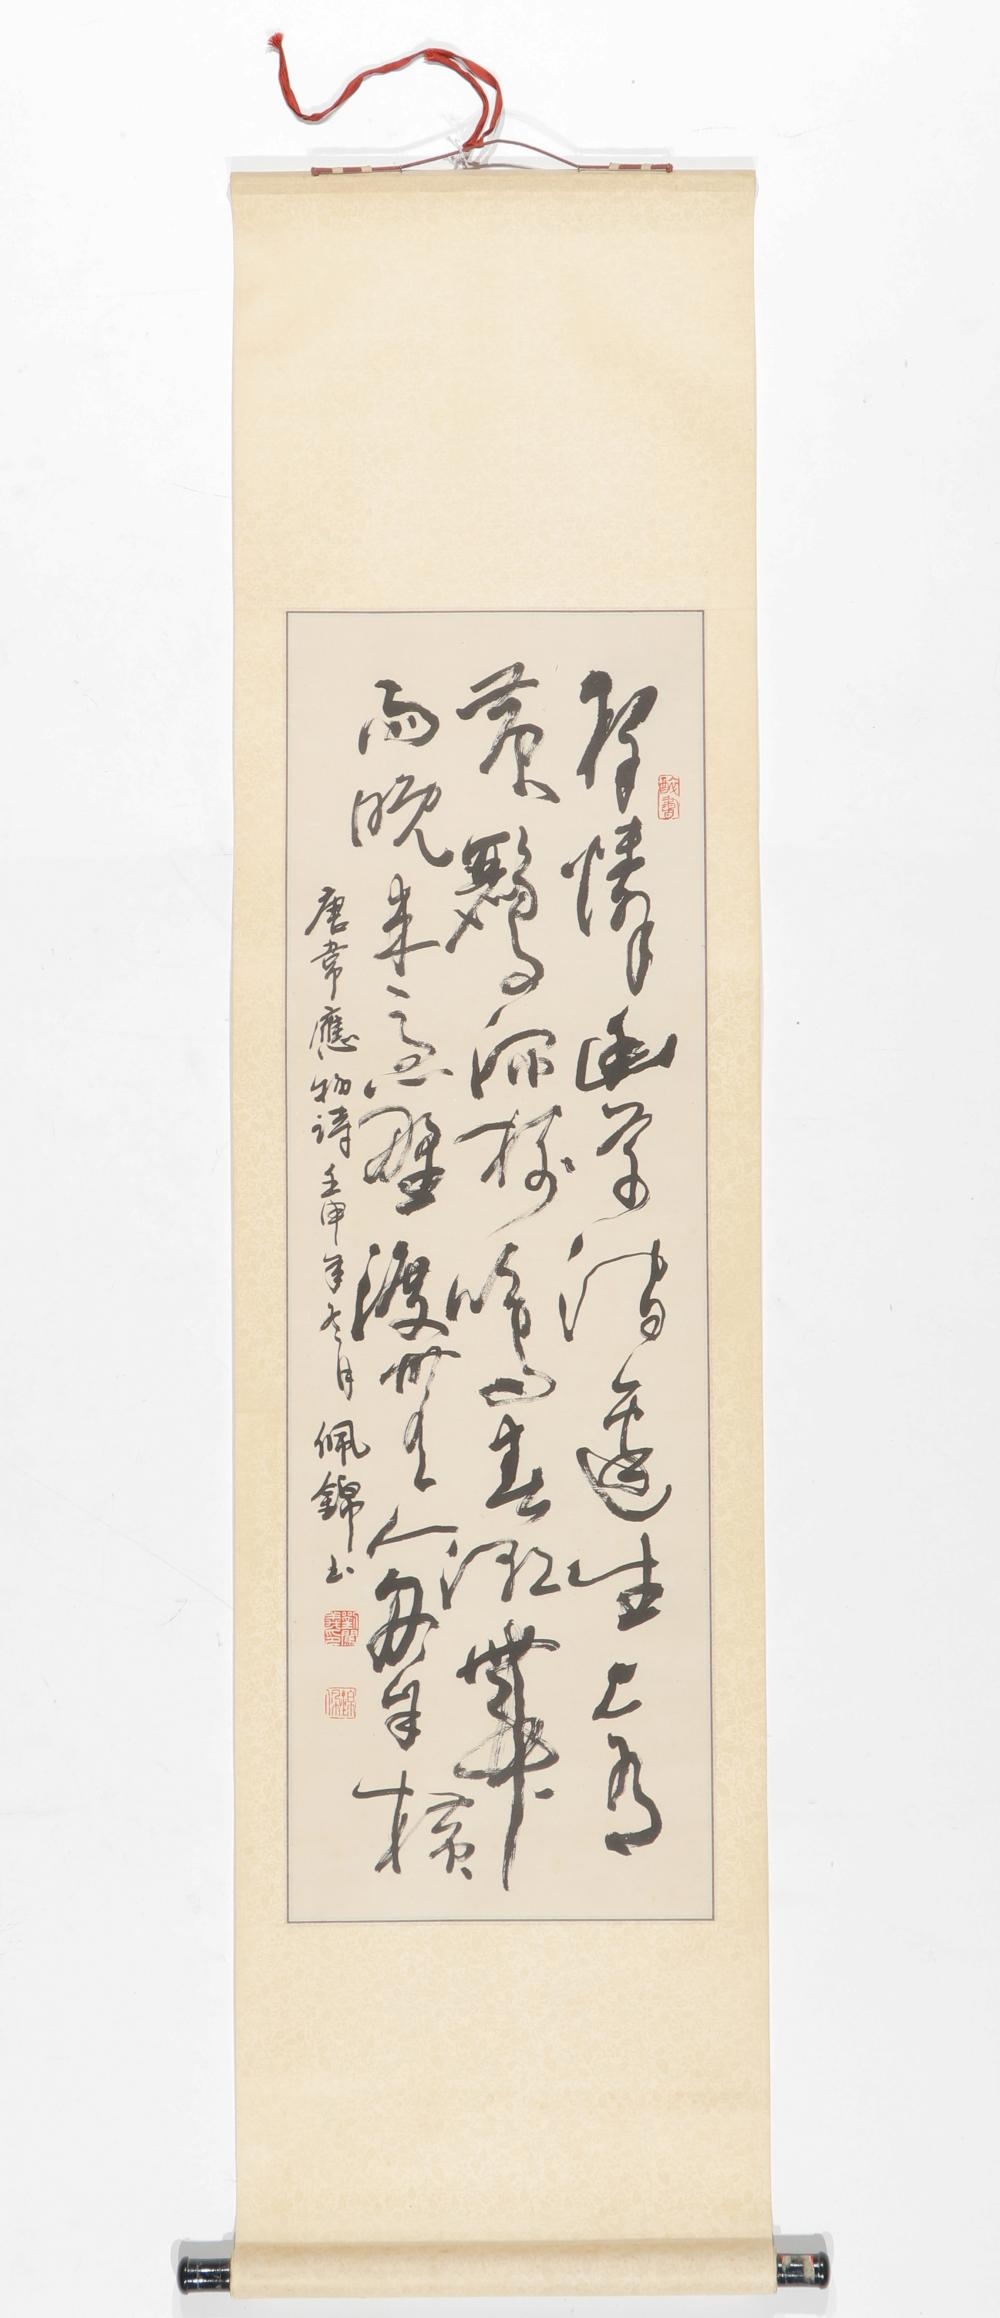 獨憐幽草澗邊生上有
黃鸝深樹鳴春潮帶
雨晚來急野渡無人舟自橫
唐韋應物詩壬申年冬月佩錦書